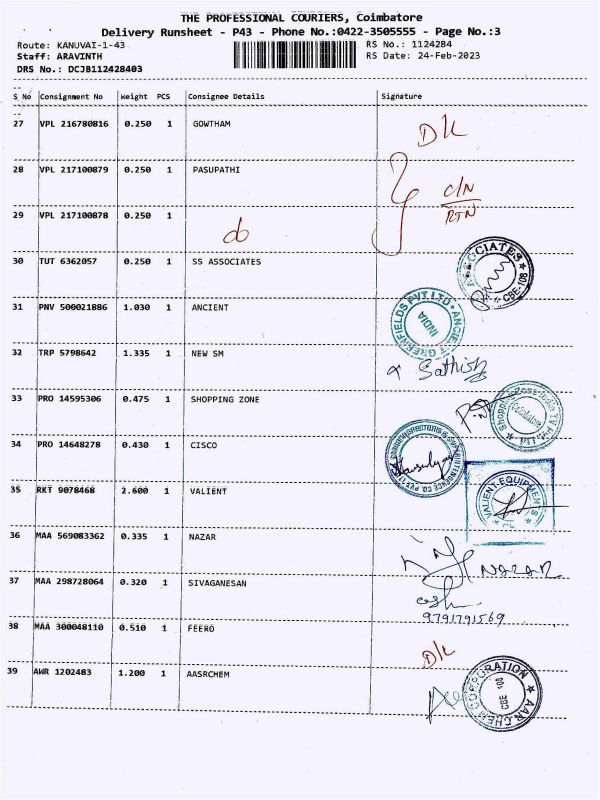 THE PROFESSIONAL COURIERS, Coimbatore
Delivery Runsheet - P43 - Phone No.:0422-3505555 - Page No.:3
Route: KANUVAI-1-43
RS No.: 1124284
Staff: ARAVINTH
RS Date: 24-Feb-2023
DRS No.: DCJB112428403
S No Consignment No Weight PCS Consignee Details Signature
27 VPL 216780816 0.250 1 GOWTHAM
DK
28 VPL 217100879 0.250 1 PASUPATHI
C/N
RTN
29 VPL 217100878 0.250 1
do
30 TUT 6362057 0.250 1 SS ASSOCIATES
ASSOCIATES ★ CBE-108 ★
31 PNV 500021886 1.030 1 ANCIENT
ANCIENT GREENFIELDS PVT LTD
INDIA
32 TRP 5798642 1.335 1 NEW SM
Sathish
33 PRO 14595306 0.475 1 SHOPPING ZONE
Coimbatore
34 PRO 14648278 0.430 1 CISCO
35 RKT 9078468 2.600 1 VALIENT
VALIENT EQUIPMENTS
36 MAA 569083362 0.335 1 NAZAR
NAZAR
37 MAA 298728064 0.320 1 SIVAGANESAN
9791791569
38 MAA 300048110 0.510 1 FEERO
DK
39 AWR 1202483 1.200 1 AASRCHEM
AAR CHEM CORPORATION
CBE 108